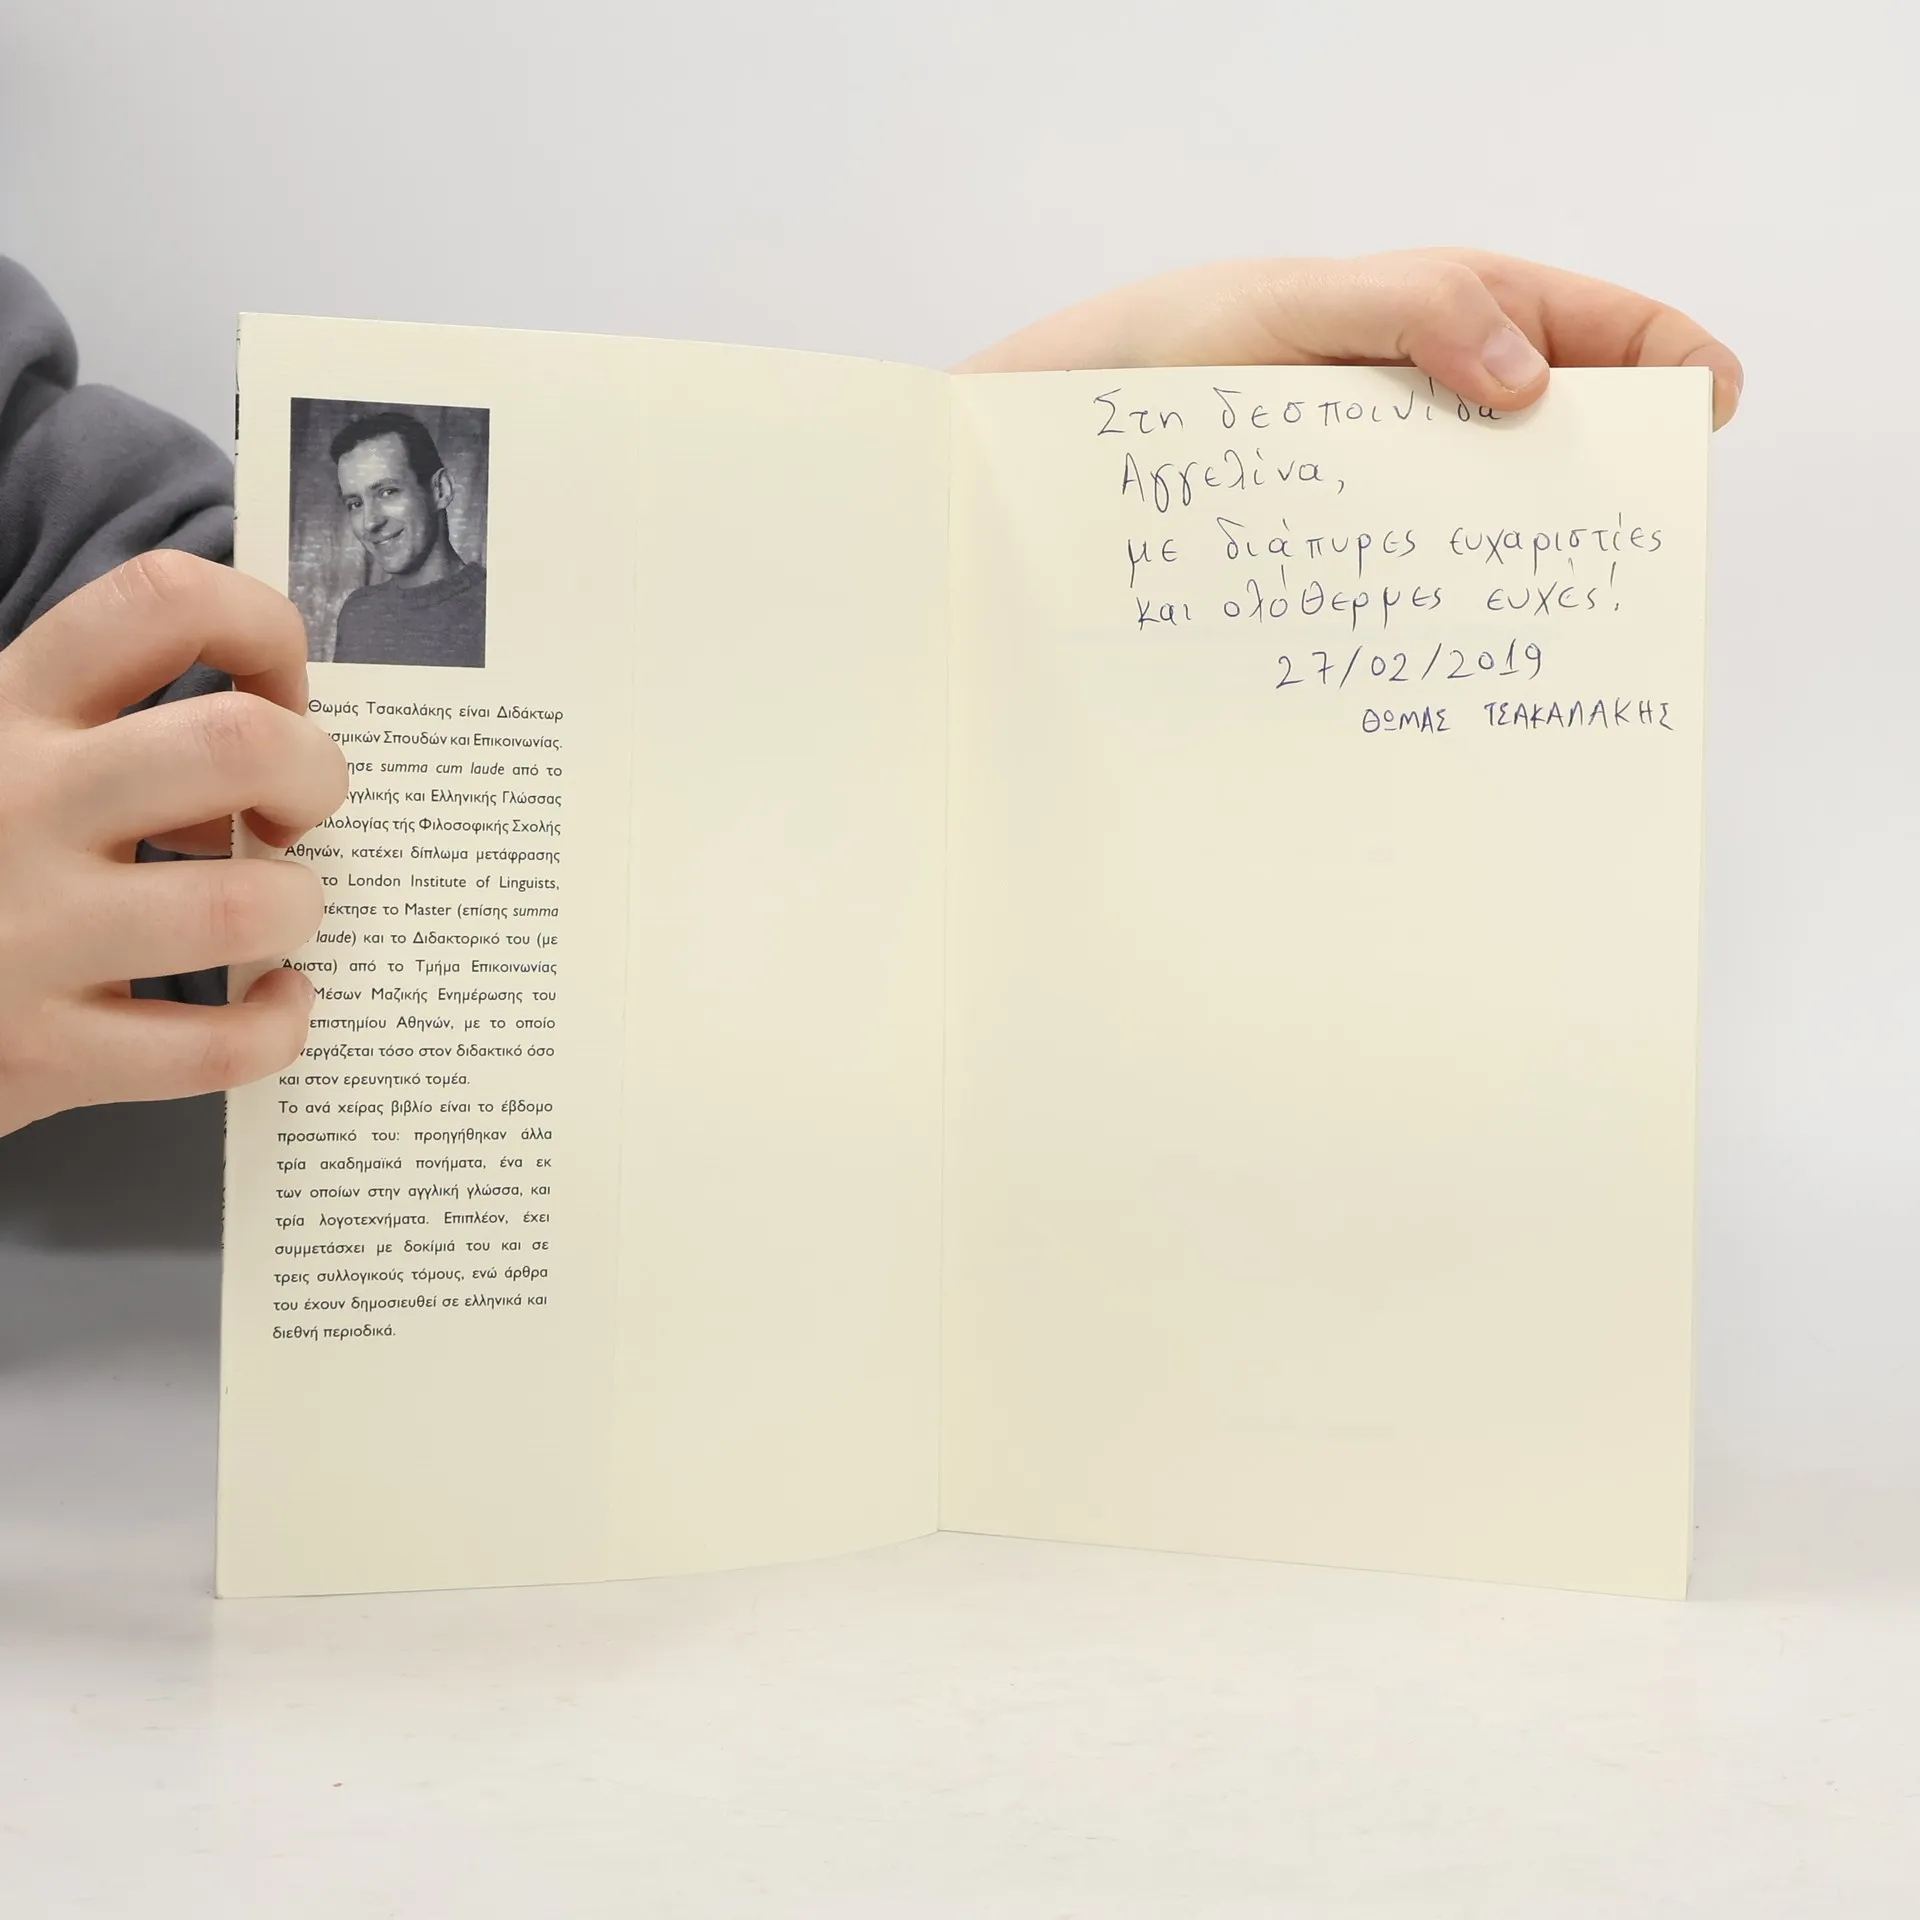 Θωμάς Τσακαλάκης είναι Διδάκτωρ
Σπουδών και Επικοινωνίας.
summa cum laude από το
και Ελληνικής Γλώσσας
τής Φιλοσοφικής Σχολής
Αθηνών, κατέχει δίπλωμα μετάφρασης
το London Institute of Linguists,
το Master (επίσης summa
laude) και το Διδακτορικό του (με
Άριστα) από το Τμήμα Επικοινωνίας
Μέσων Μαζικής Ενημέρωσης του
Αθηνών, με το οποίο
τόσο στον διδακτικό όσο
και στον ερευνητικό τομέα.
Το ανά χείρας βιβλίο είναι το έβδομο
προσωπικό του: προηγήθηκαν άλλα
τρία ακαδημαϊκά πονήματα, ένα εκ
των οποίων στην αγγλική γλώσσα, και
τρία λογοτεχνήματα. Επιπλέον, έχει
συμμετάσχει με δοκίμιά του και σε
τρεις συλλογικούς τόμους, ενώ άρθρα
του έχουν δημοσιευθεί σε ελληνικά και
διεθνή περιοδικά.
Στη δεσποινίδα
Αγγελίνα,
με διάπυρες ευχαριστίες
και ολόθερμες ευχές!
27/02/2019
ΘΩΜΑΣ ΤΣΑΚΑΛΑΚΗΣ